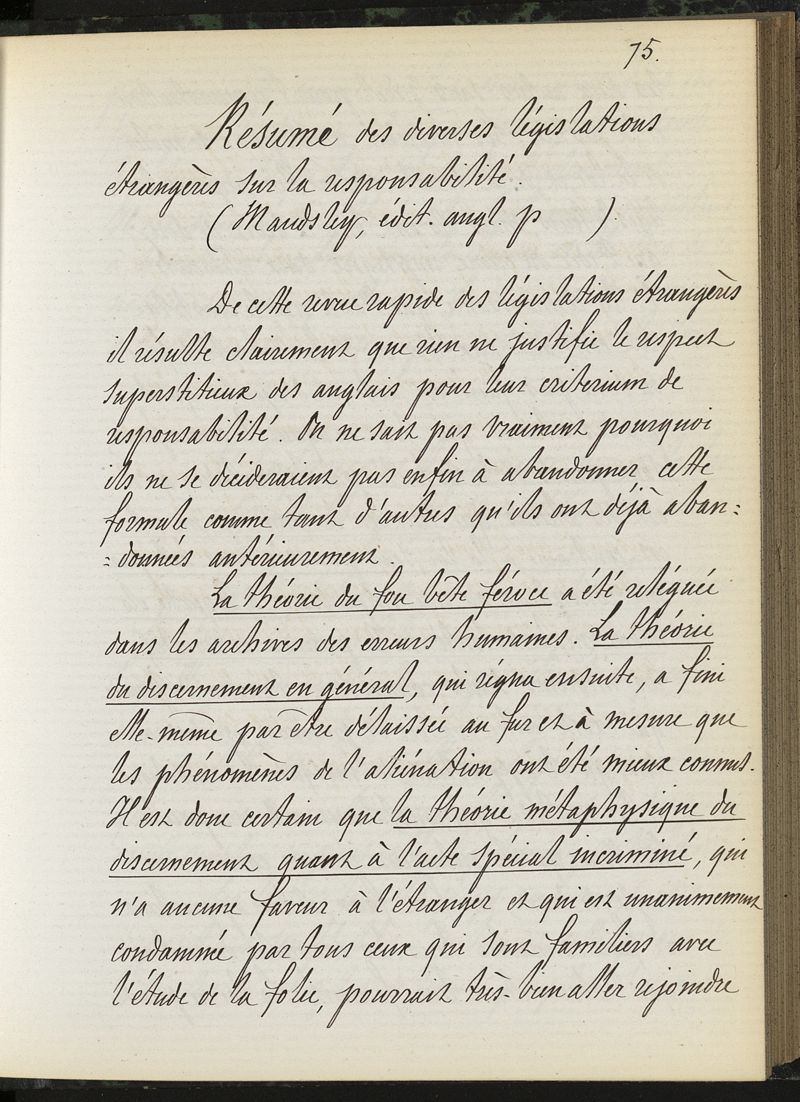 75.
Résumé des diverses législations
étrangères sur la responsabilité.
(Maudsley, édit. angl. p     ).
De cette revue rapide des législations étrangères
il résulte clairement que rien ne justifie le respect
superstitieux des anglais pour leur criterium de
responsabilité. On ne sait pas vraiment pourquoi
ils ne se décideraient pas enfin à abandonner cette
formule comme tant d'autres qu'ils ont déjà aban=
=données antérieurement.
La théorie du fou bête féroce a été reléguée
dans les archives des erreurs humaines. La théorie
du discernement en général, qui régna ensuite, a fini
elle-même par être délaissée au fur et à mesure que
les phénomènes de l'aliénation ont été mieux connus.
Il est donc certain que la théorie métaphysique du
discernement quant à l'acte spécial incriminé, qui
n'a aucune faveur à l'étranger et qui est unanimement
condamnée par tous ceux qui sont familiers avec
l'étude de la folie, pourrait très-bien aller rejoindre